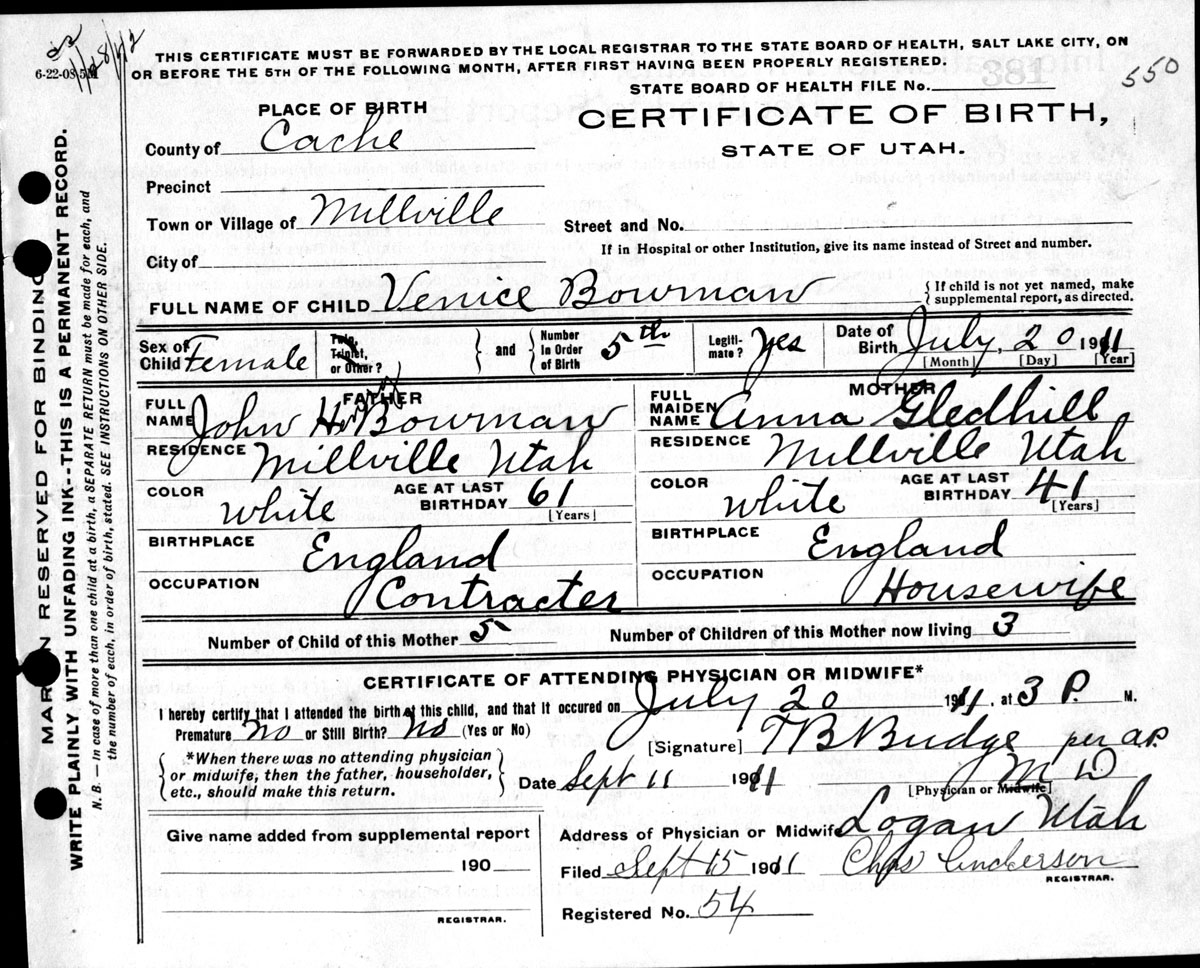 22
1/28/42
6-22-08-5M
THIS CERTIFICATE MUST BE FORWARDED BY THE LOCAL REGISTRAR TO THE STATE BOARD OF HEALTH, SALT LAKE CITY, ON
OR BEFORE THE 5TH OF THE FOLLOWING MONTH, AFTER FIRST HAVING BEEN PROPERLY REGISTERED.
STATE BOARD OF HEALTH FILE No. 381
550
PLACE OF BIRTH
CERTIFICATE OF BIRTH,
STATE OF UTAH.
County of Cache
Precinct
Town or Village of Millville
Street and No.
If in Hospital or other Institution, give its name instead of Street and number.
City of
FULL NAME OF CHILD Venice Bowman
{ If child is not yet named, make
supplemental report, as directed.
Sex of Child Female
Twin, Triplet, or Other?
} and {
Number in Order of Birth 5th
Legiti-mate? Yes
Date of Birth July 20 1911
[Month] [Day] [Year]
FATHER
FULL NAME John H. Bowman
RESIDENCE Millville Utah
COLOR white
AGE AT LAST BIRTHDAY 61
[Years]
BIRTHPLACE England
OCCUPATION Contracter
MOTHER
FULL MAIDEN NAME Anna Gledhill
RESIDENCE Millville Utah
COLOR white
AGE AT LAST BIRTHDAY 41
[Years]
BIRTHPLACE England
OCCUPATION Housewife
Number of Child of this Mother 5
Number of Children of this Mother now living 3
CERTIFICATE OF ATTENDING PHYSICIAN OR MIDWIFE*
I hereby certify that I attended the birth of this child, and that it occured on July 20 1911, at 3 P. M.
Premature No or Still Birth? No (Yes or No)
[Signature] T B Budge per a.P.
M D
[Physician or Midwife]
{ *When there was no attending physician
or midwife, then the father, householder,
etc., should make this return. }
Date Sept 11 1911
Give name added from supplemental report
190
REGISTRAR.
Address of Physician or Midwife Logan Utah
Filed Sept 15 1911 Chas Anderson
REGISTRAR.
Registered No. 54
MARGIN RESERVED FOR BINDING
WRITE PLAINLY WITH UNFADING INK--THIS IS A PERMANENT RECORD.
N. B. — In case of more than one child at a birth, a SEPARATE RETURN must be made for each, and
the number of each, in order of birth, stated. SEE INSTRUCTIONS ON OTHER SIDE.